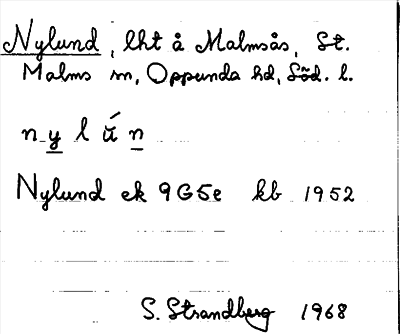 Nylund, lht å Malmsås, St.
Malms sn, Oppunda hd, Söd. l.
n y l ŭ́ n
Nylund ek 9G5e kb 1952
S. Strandberg 1968